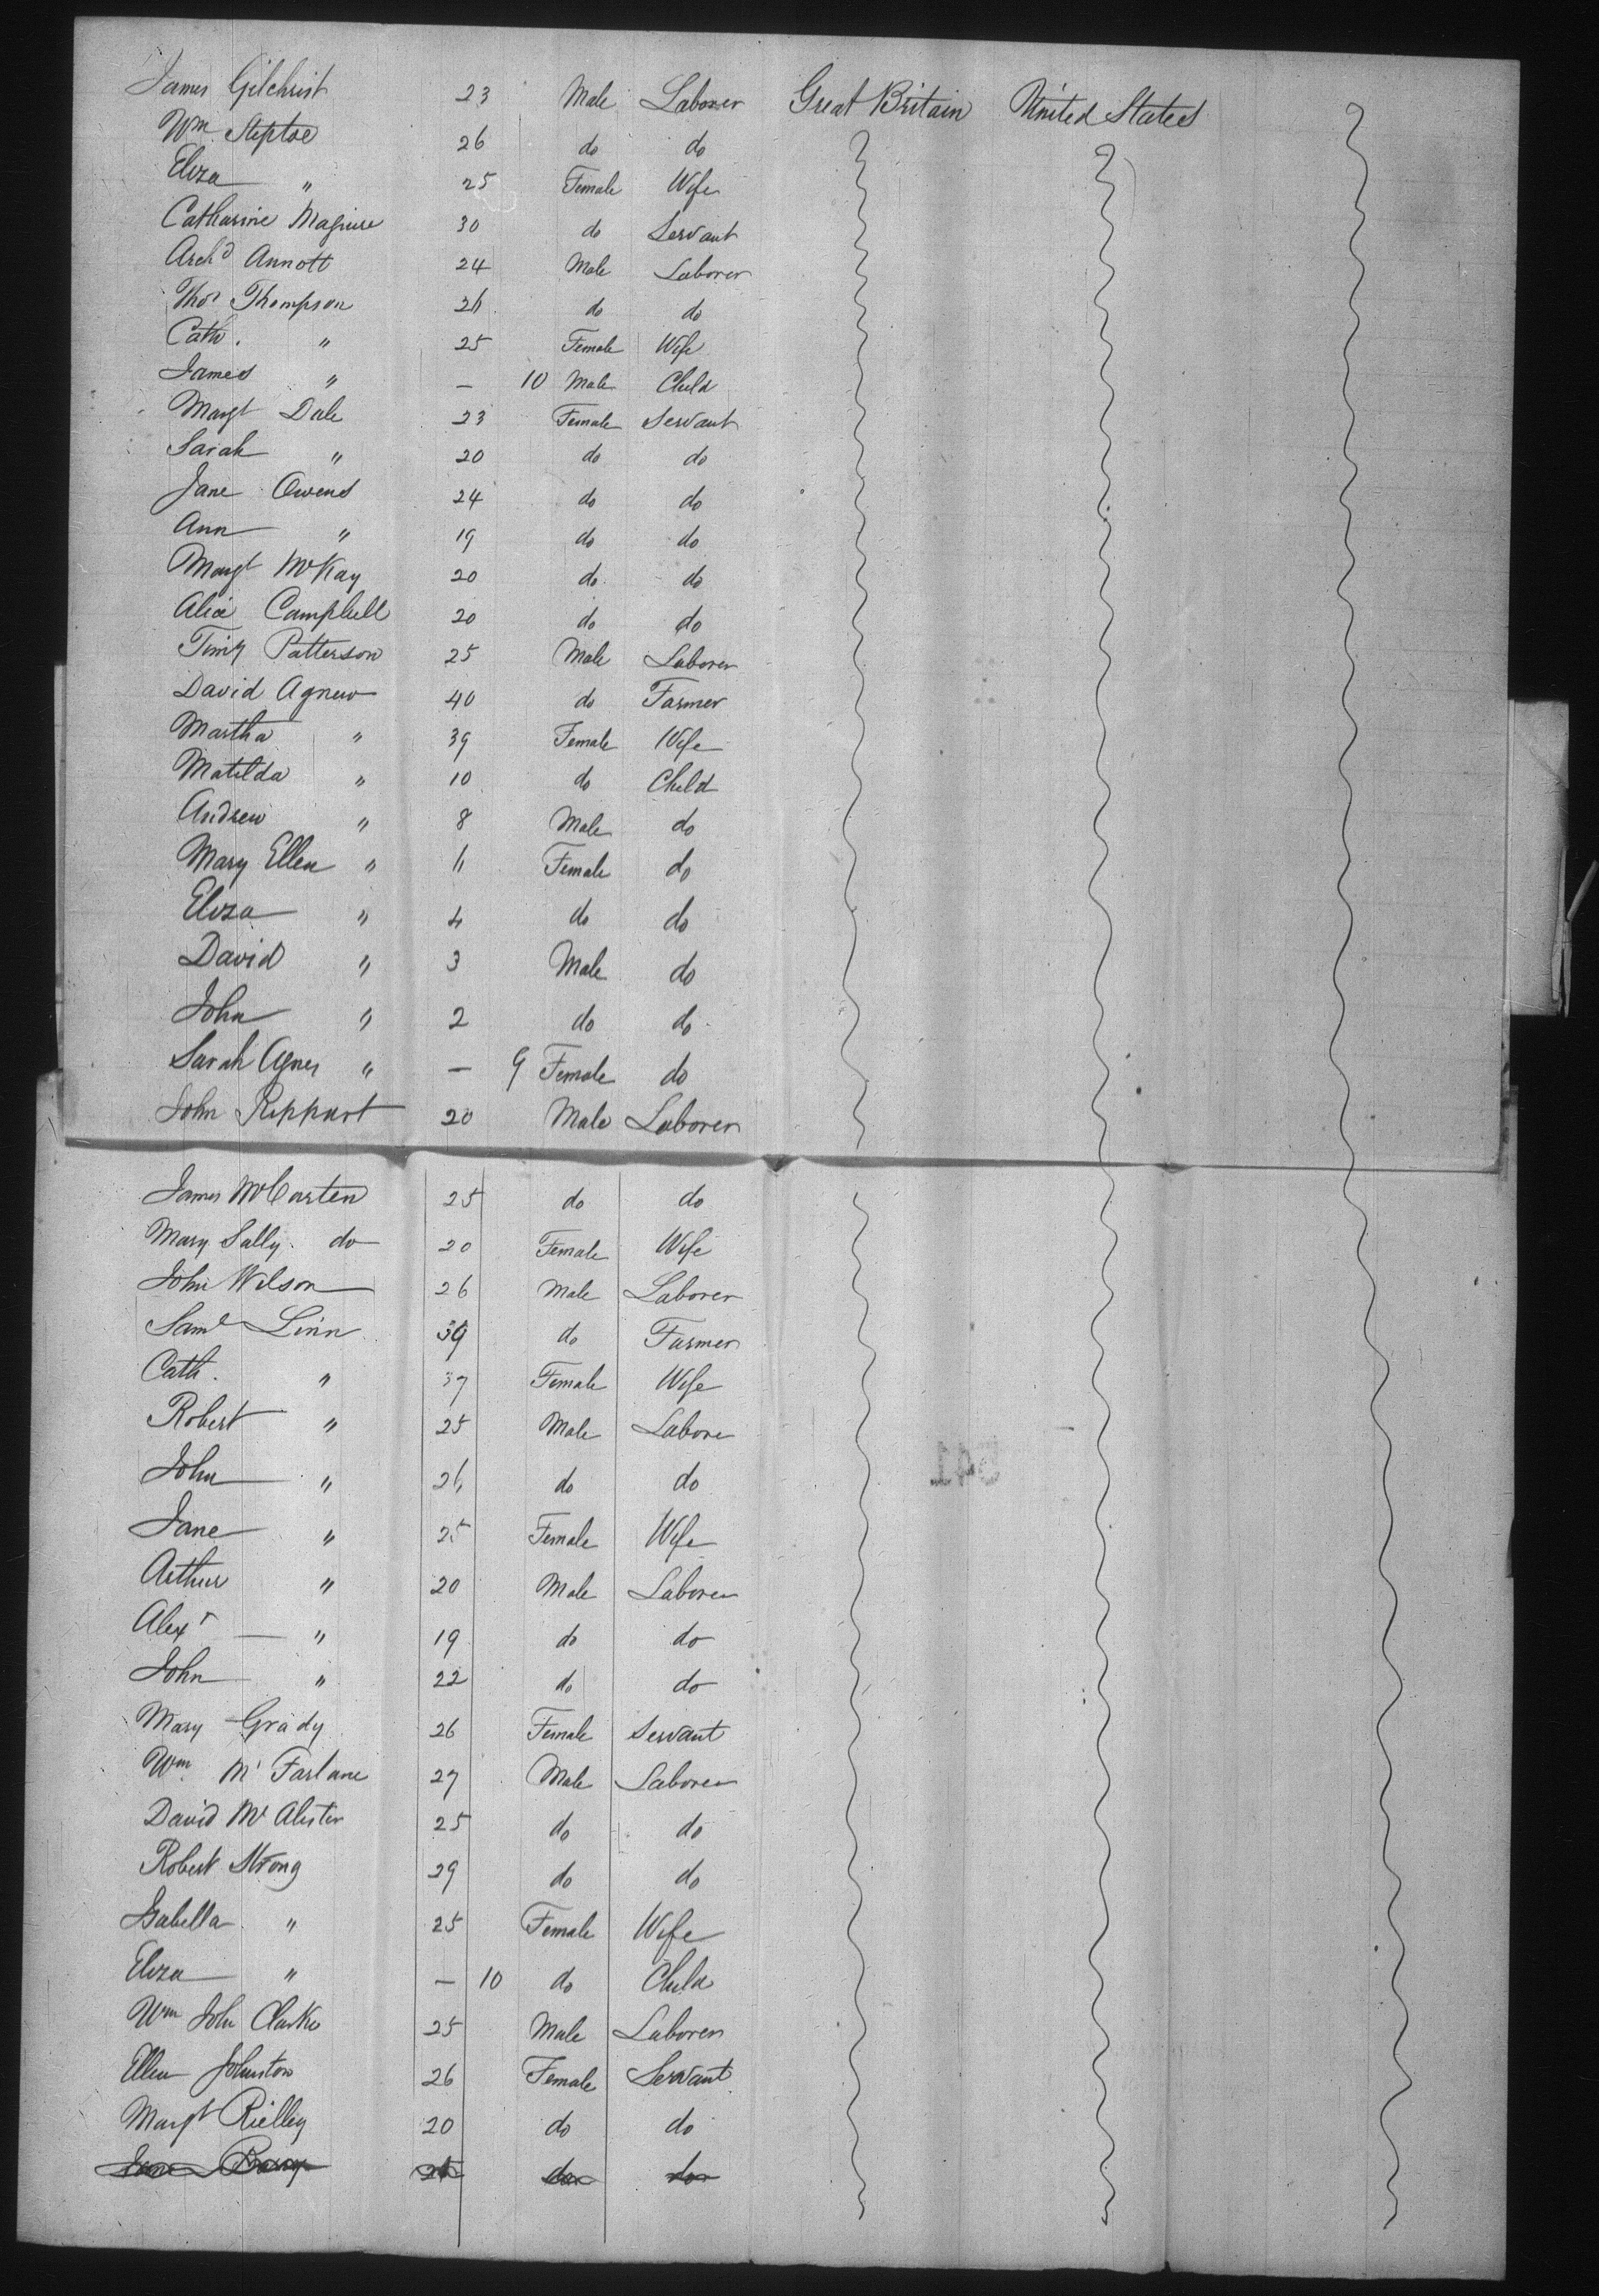 James Gilchrist 23 Male Laborer Great Britain United States
Wm. Steptoe 26 do do
Eliza " 25 Female Wife
Catharine Maguire 30 do Servant
Archd Annott 24 Male Laborer
Thos Thompson 26 do do
Cath. " 25 Female Wife
James " — 10 Male Child
Margt Dale 23 Female Servant
Sarah " 20 do do
Jane Owens 24 do do
Ann " 19 do do
Margt McKay 20 do do
Alice Campbell 20 do do
Timy Patterson 25 Male Laborer
David Agnew 40 do Farmer
Martha " 39 Female Wife
Matilda " 10 do Child
Andrew " 8 Male do
Mary Ellen " 6 Female do
Eliza " 4 do do
David " 3 Male do
John " 2 do do
Sarah Agnes " — 9 Female do
John Reppart 20 Male Laborer
James McCarten 25 do do
Mary Sally do 20 Female Wife
John Wilson 26 Male Laborer
Saml Linn 39 do Farmer
Cath. " 37 Female Wife
Robert " 25 Male Labore
John " 26 do do
Jane " 25 Female Wife
Arthur " 20 Male Laborer
Alexr — " 19 do do
John " 22 do do
Mary Grady 26 Female Servant
Wm. Mc Farlane 27 Male Laborer
David Mc Alister 25 do do
Robert Strong 29 do do
Isabella " 25 Female Wife
Eliza " — 10 do Child
Wm John Clarke 25 Male Laborer
Ellen Johnston 26 Female Servant
Margt Rielley 20 do do